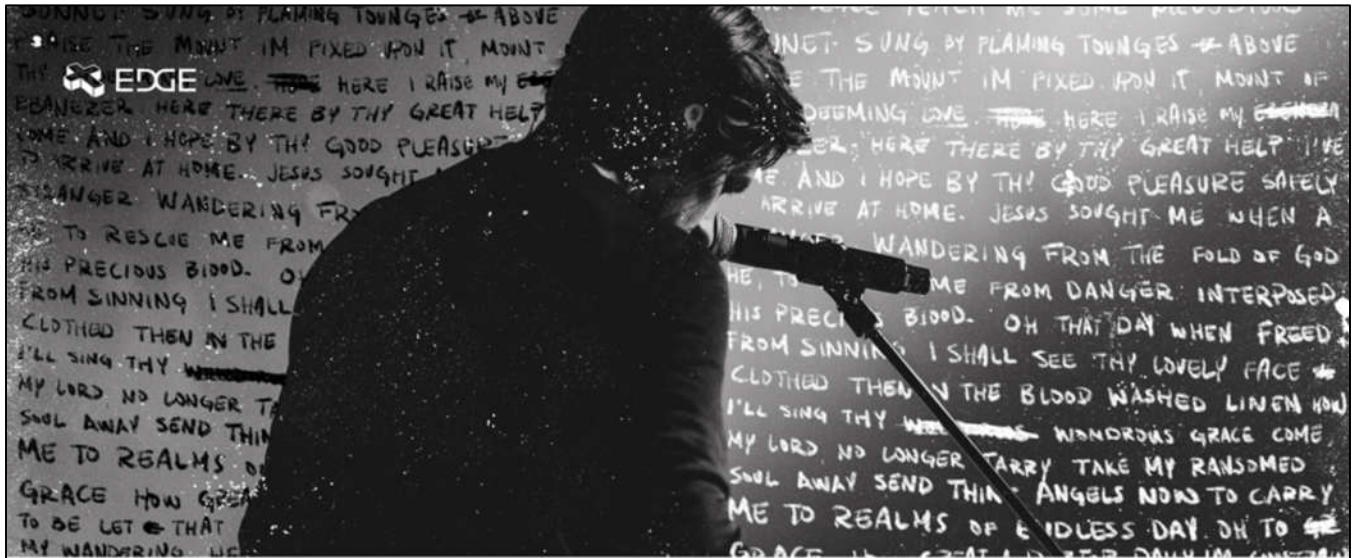 EDGE
SONNET. SUNG BY FLAMING TOUNGES ABOVE
PRAISE THE MOUNT IM FIXED UPON IT, MOUNT
THY LOVE HERE I RAISE MY
EBANEZER HERE THERE BY THY GREAT HELP
COME AND I HOPE BY THY GOOD PLEASURE
TO ARRIVE AT HOME. JESUS SOUGHT
STRANGER WANDERING
HE TO RESCUE ME FROM
HIS PRECIOUS BLOOD. OH
FROM SINNING I SHALL
CLOTHED THEN IN THE
I'LL SING THY
MY LORD NO LONGER
SOUL AWAY SEND
ME TO REALMS
GRACE HOW
TO BE LET THAT
MY WANDERING
TEACH ME SOME
SUNG BY FLAMING TOUNGES ABOVE
THE MOUNT IM FIXED UPON IT MOUNT OF
LOVE HERE I RAISE MY
HERE THERE BY THY GREAT HELP I'VE
AND I HOPE BY THY GOOD PLEASURE SAFELY
ARRIVE AT HOME. JESUS SOUGHT ME WHEN A
WANDERING FROM THE FOLD OF GOD
HE, TO ME FROM DANGER INTERPOSED
HIS PRECIOUS BLOOD. OH THAT DAY WHEN FREED
FROM SINNING I SHALL SEE THY LOVELY FACE
CLOTHED THEN IN THE BLOOD WASHED LINEN HOW
I'LL SING THY WONDROUS GRACE COME
MY LORD NO LONGER TARRY TAKE MY RANSOMED
SOUL AWAY SEND THINE ANGELS NOW TO CARRY
ME TO REALMS OF ENDLESS DAY. OH TO
GRACE